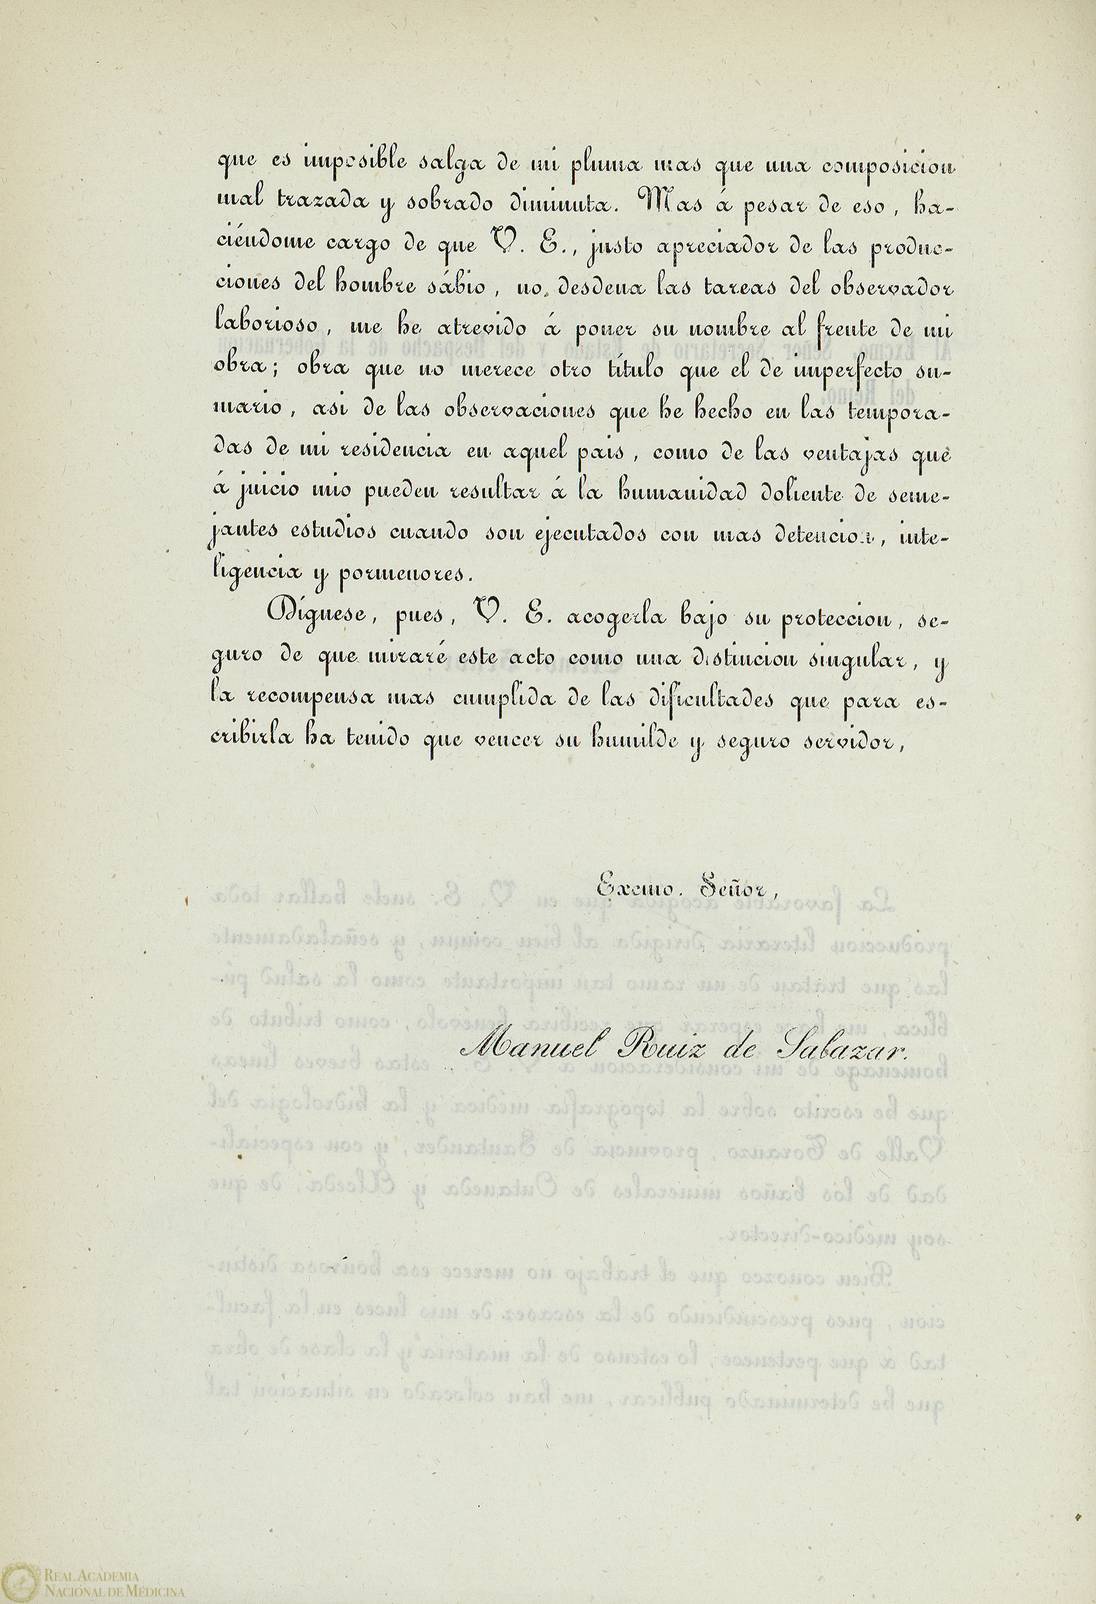 que es imposible salga de mi pluma mas que una composicion
mal trazada y sobrado diminuta. Mas á pesar de eso, ha-
ciéndome cargo de que V. E., justo apreciador de las produc-
ciones del hombre sábio, no desdena las tareas del observador
laborioso, me he atrevido á poner su nombre al frente de mi
obra; obra que no merece otro título que el de imperfecto su-
mario, asi de las observaciones que he hecho en las tempora-
das de mi residencia en aquel pais, como de las ventajas que
á juicio mio pueden resultar á la humanidad doliente de seme-
jantes estudios cuando son ejecutados con mas detencion, inte-
ligencia y pormenores.
Dígnese, pues, V. E. acogerla bajo su proteccion, se-
guro de que miraré este acto como una distincion singular, y
la recompensa mas cumplida de las dificultades que para es-
cribirla ha tenido que vencer su humilde y seguro servidor,
Excmo. Señor,
Manuel Ruiz de Salazar.
REAL ACADEMIA
NACIONAL DE MEDICINA